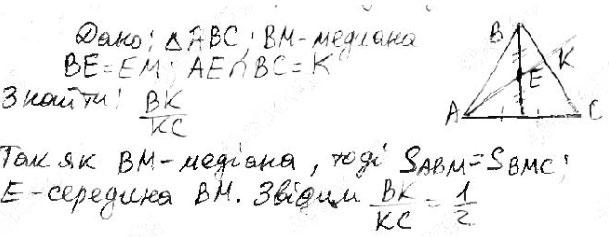 Дано: △ABC; BM-медіана
BE=EM; AE∩BC=K
Знайти: BK/KC
B
E
K
A
C
Так як BM-медіана, тоді S_ABM=S_BMC;
E-середина BM. Звідси BK/KC=1/2